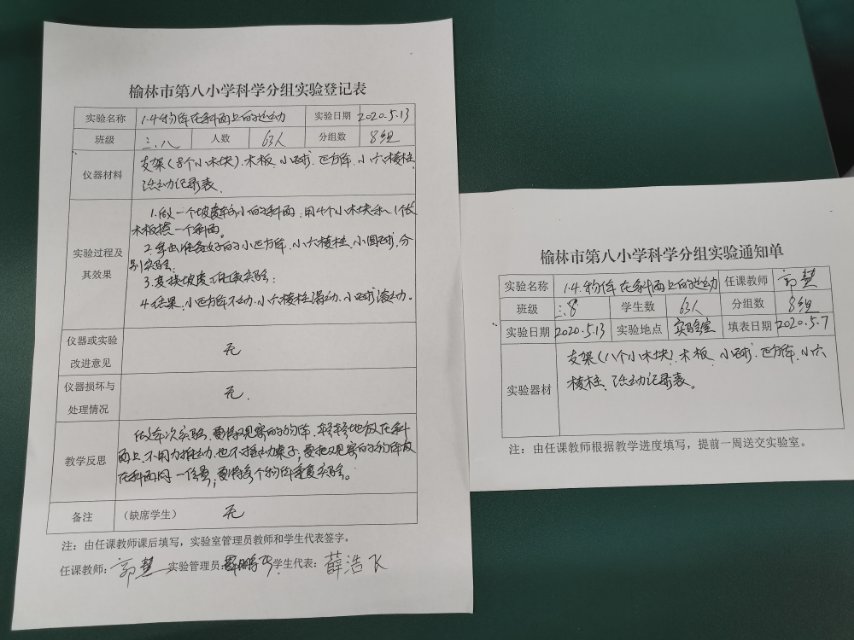 榆林市第八小学科学分组实验登记表
实验名称 1.4物体在斜面上的运动 实验日期 2020.5.13
班级 三.八 人数 63人 分组数 8组
仪器材料 支架(8个小木块).木板.小球.正方体.小六棱柱.
活动记录表.
实验过程及其效果
1.做一个坡度较小的斜面,用4个小木块和1个长
木板搭一个斜面。
2.拿出准备好的小正方体,小六棱柱,小圆球,分
别实验.
3.变换坡度 重复实验.
4.结果,小正方体不动.小六棱柱滑动.小球滚动。
仪器或实验改进意见 无
仪器损坏与处理情况 无.
教学反思
做本次实验,要将观察的物体,轻轻地放在斜
面上,不用力推动,也不推动桌子;要把观察的物体放
在斜面同一位置;要将多个物体重复实验。
备注 (缺席学生) 无
注：由任课教师课后填写，实验室管理员教师和学生代表签字。
任课教师: 郭慧 实验管理员: 学生代表: 薛浩飞
榆林市第八小学科学分组实验通知单
实验名称 1.4物体在斜面上的运动 任课教师 郭慧
班级 三.8 学生数 63人 分组数 8组
实验日期 2020.5.13 实验地点 实验室 填表日期 2020.5.7
实验器材 支架(八个小木块).木板.小球.正方体.小六
棱柱、活动记录表。
注：由任课教师根据教学进度填写，提前一周送交实验室。